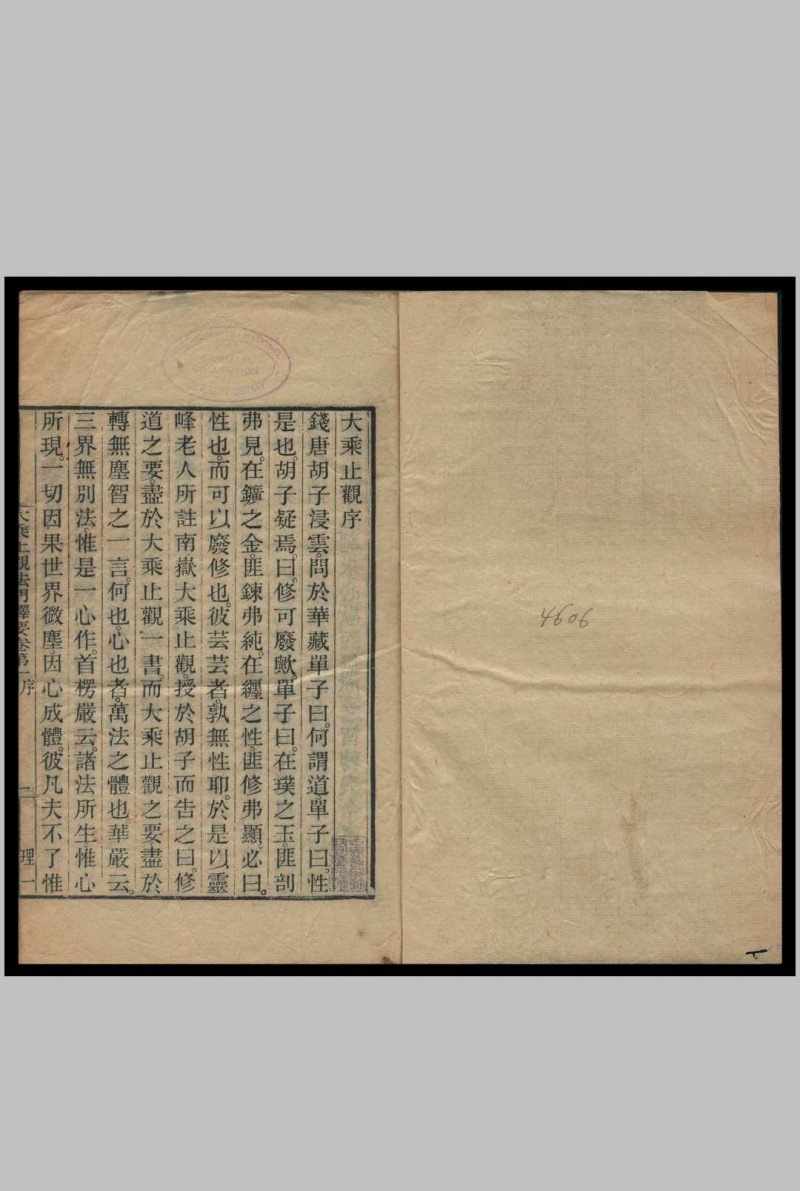 大乘止觀序
錢唐胡子浸雲。問於華藏單子曰。何謂道單子曰。性
是也。胡子疑焉。曰。修可廢歟。單子曰。在璞之玉。匪剖
弗見。在鑛之金。匪鍊弗純。在纏之性。匪修弗顯。必曰。
性也。而可以廢修也。彼芸芸者。孰無性耶。於是以靈
峰老人所註南嶽大乘止觀。授於胡子而告之曰。修
道之要。盡於大乘止觀一書。而大乘止觀之要。盡於
轉無塵智之一言。何也。心也者。萬法之體也。華嚴云。
三界無別法。惟是一心作。首楞嚴云。諸法所生。惟心
所現。一切因果世界微塵。因心成體。彼凡夫不了惟
大乘止觀法門釋要卷第一序
理一
4606